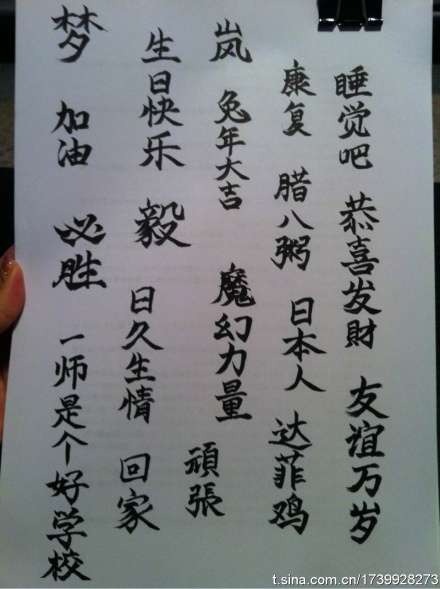 睡觉吧 恭喜发財 友谊万岁
康复 腊八粥 日本人 达菲鸡
岚 兔年大吉 魔幻力量 頑張
生日快乐 毅 日久生情 回家
梦 加油 必胜 一师是个好学校
t.sina.com.cn/1739928273